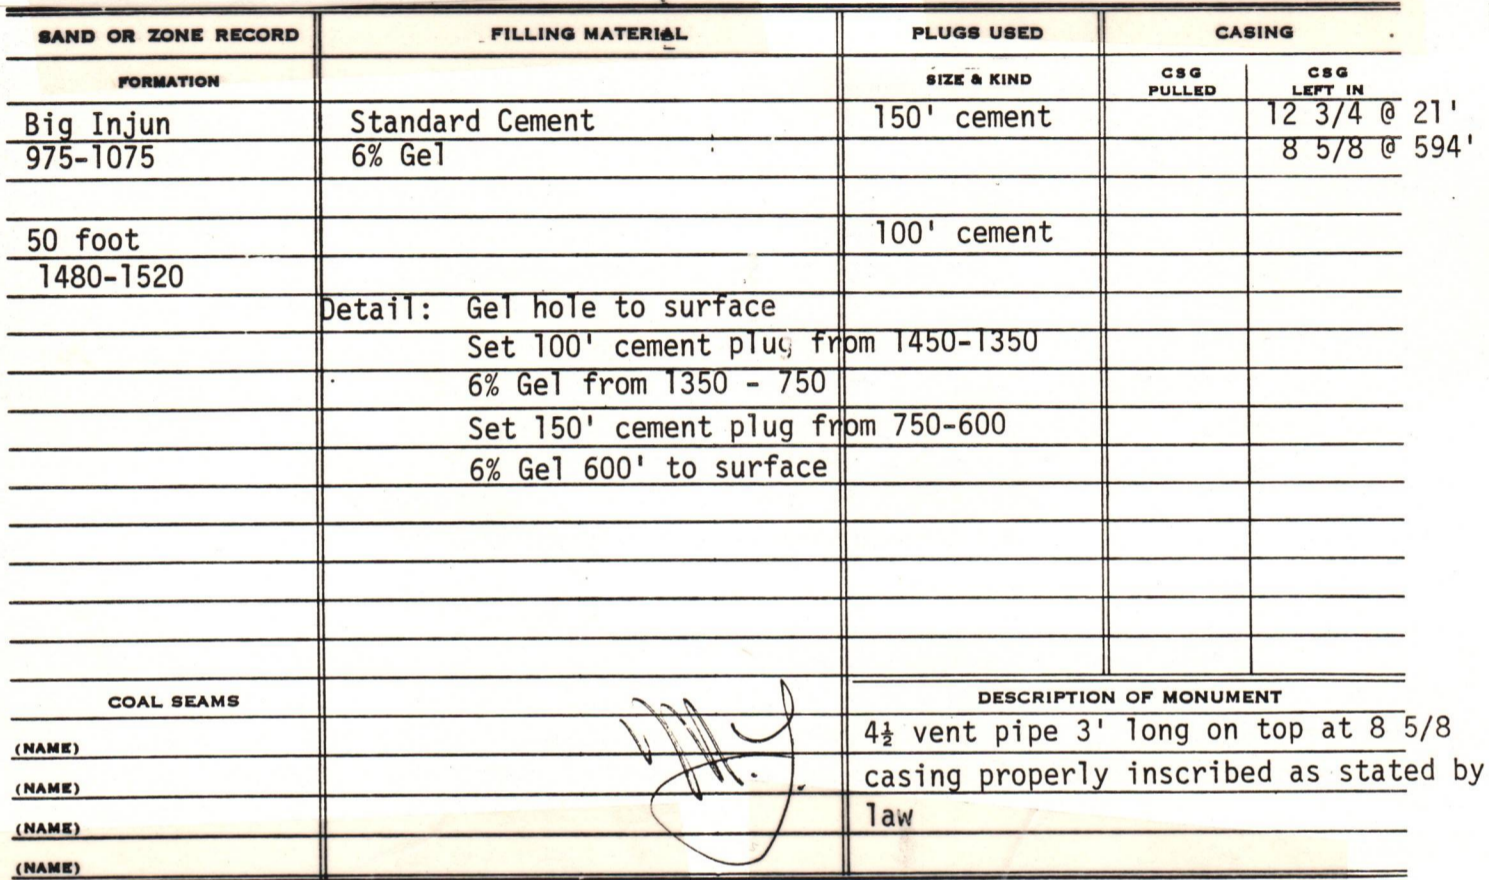 SAND OR ZONE RECORD FILLING MATERIAL PLUGS USED CASING
FORMATION SIZE & KIND CSG PULLED CSG LEFT IN
Big Injun Standard Cement 150' cement 12 3/4 @ 21'
975-1075 6% Gel 8 5/8 @ 594'
50 foot 100' cement
1480-1520
Detail: Gel hole to surface
Set 100' cement plug from 1450-1350
6% Gel from 1350 - 750
Set 150' cement plug from 750-600
6% Gel 600' to surface
COAL SEAMS DESCRIPTION OF MONUMENT
(NAME) 4½ vent pipe 3' long on top at 8 5/8
(NAME) casing properly inscribed as stated by
(NAME) law
(NAME)